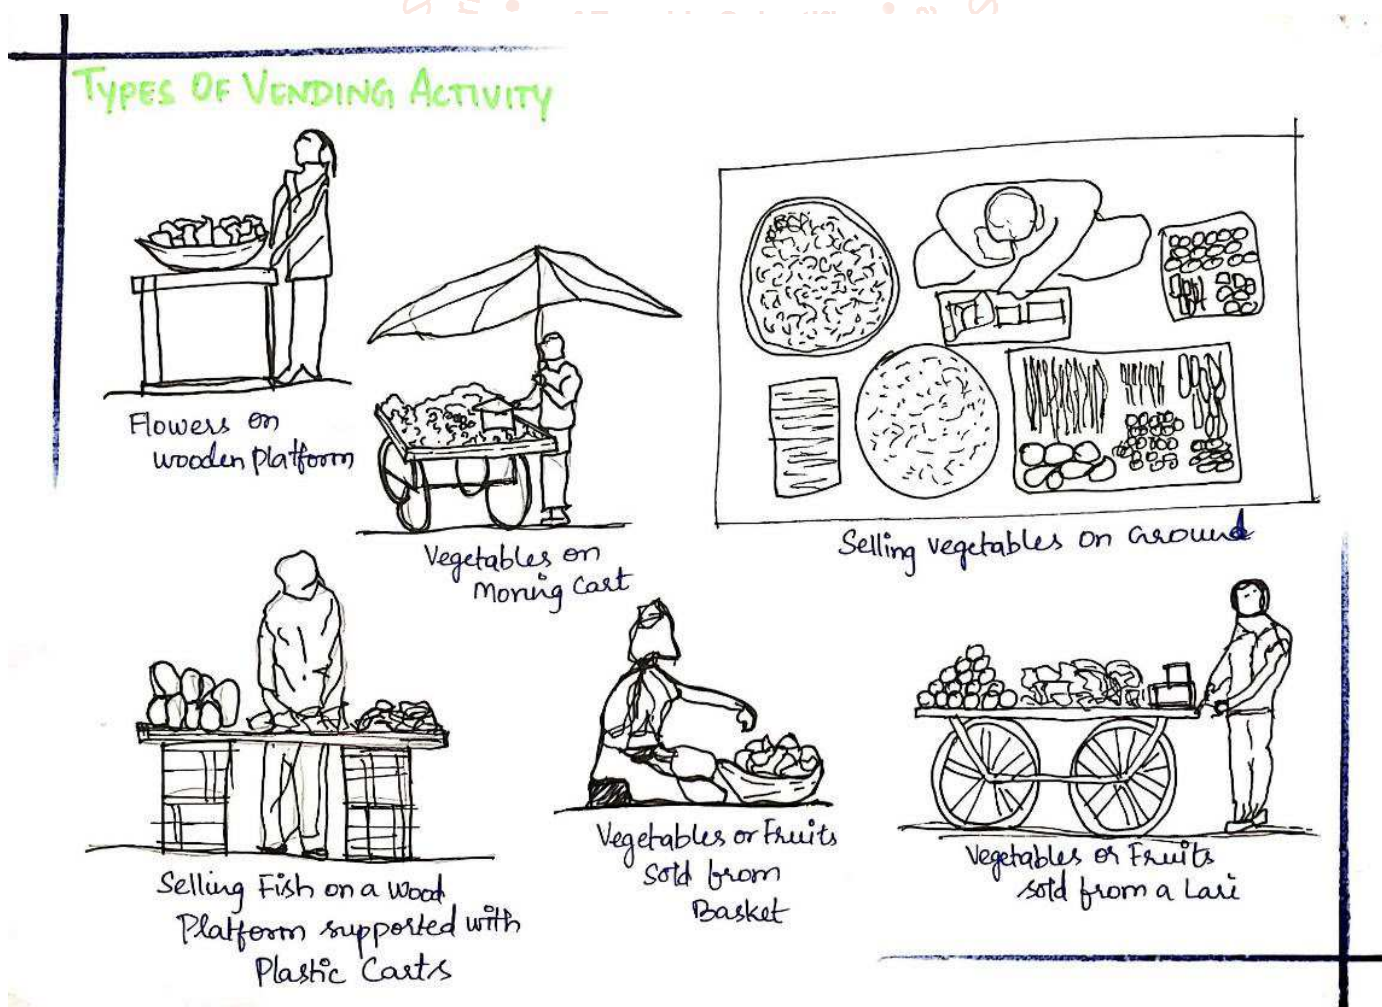 TYPES OF VENDING ACTIVITY
Flowers on
wooden platform
Vegetables on
Moving Cart
Selling vegetables on Ground
Selling Fish on a Wood
Platform supported with
Plastic Carts
Vegetables or Fruits
Sold from
Basket
Vegetables or Fruits
sold from a Lari